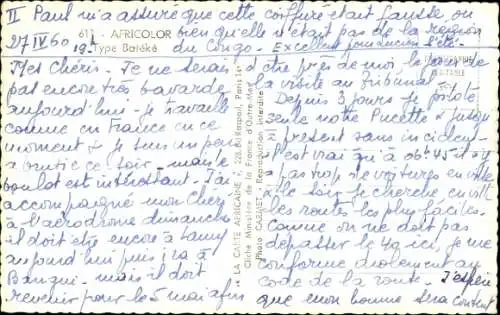 II Paul m'a assuré que cette coiffure était fausse ou
bien qu'elle n'était pas de la région
du Congo. - Excellent
27 IV 60
61 - AFRICOLOR
19. Type Batéké
Mes Chéris. Je ne serai
pas encore très bavarde
aujourd'hui. Je travaille
comme en France en ce
moment & je suis un peu
abrutie ce soir, mais le
boulot est intéressant. J'ai
accompagné mon Chéry
à l'aérodrome dimanche
il doit être encore à Lamy
aujourd'hui puis ira à
Bangui, mais il doit
revenir pour le 5 mai afin
d'être près de moi le jour de
la visite au Tribunal
Depuis 3 jours je pilote
seule notre Pucette & jusqu'
à présent sans incident.
C'est vrai qu'à 6h45 il n'y
a pas trop de voitures en ville
& le soir je cherche
les routes les plus faciles.
Comme on ne doit pas
dépasser le 40 ici, je me
conforme drôlement au
code de la route. J'espère
que mon bonhomme sera content
"LA CARTE AFRICAINE", Paris
Cliché Ministère de la France d'Outre-Mer
Photo CARNET, Reproduction interdite